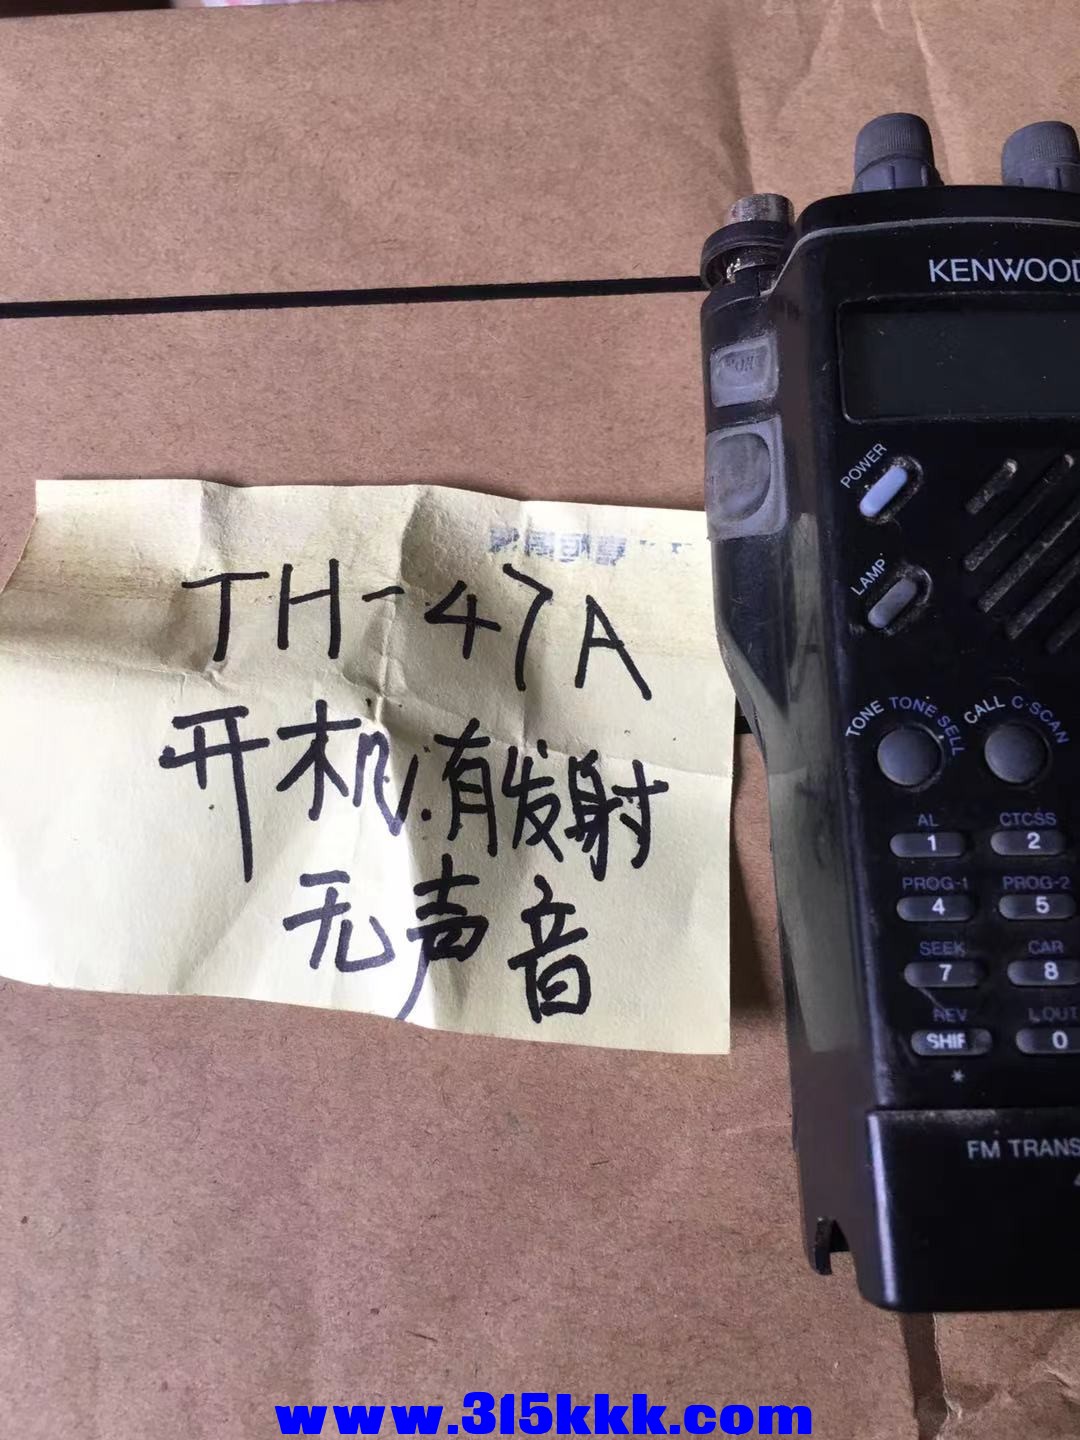 KENWOOD
POWER
LAMP
TH-47A
开机.有发射
无声音
TONE TONE SELL
CALL C·SCAN
AL
1
CTCSS
2
PROG-1
4
PROG-2
5
SEEK
7
CAR
8
REV
SHIF
L.OUT
0
*
FM TRANS
www.315kkk.com